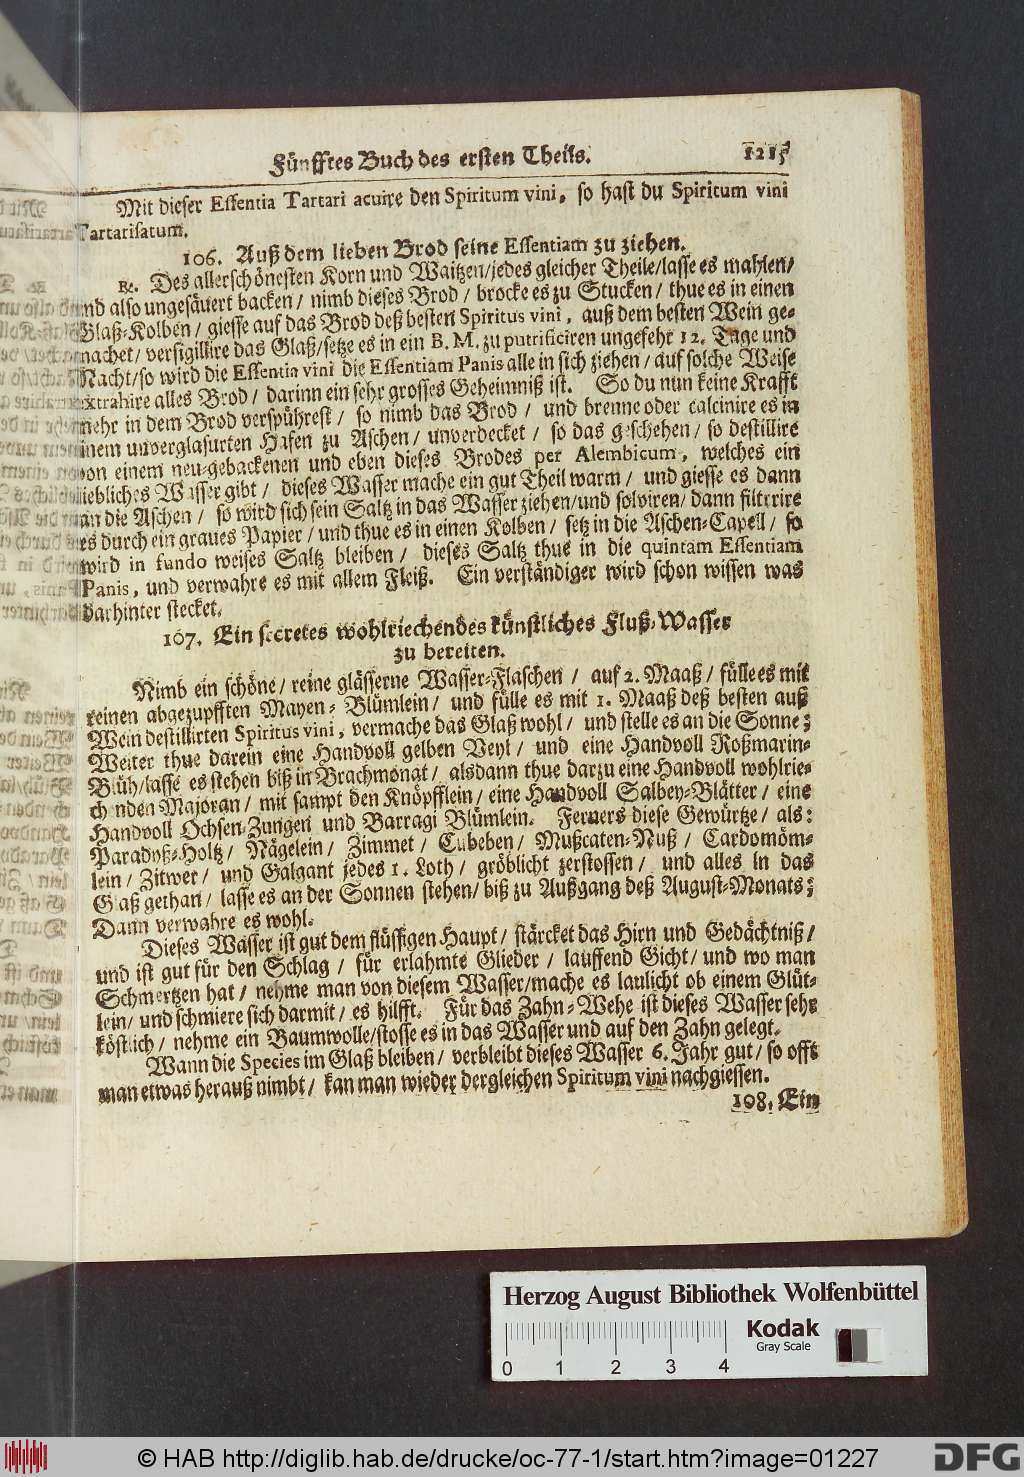 Fünfftes Buch des ersten Theils. 1215
Mit dieser Essentia Tartari acuire den Spiritum vini, so hast du Spiritum vini
Tartarisatum.
106. Auß dem lieben Brod seine Essentiam zu ziehen.
℞. Des allerschönesten Korn und Waitzen/jedes gleicher Theile/lasse es mahlen/
und also ungesäuert backen / nimb dieses Brod / brocke es zu Stucken / thue es in einen
Glaß-Kolben / giesse auf das Brod deß besten Spiritus vini, auß dem besten Wein ge-
machet/ versigillire das Glaß/setze es in ein B. M. zu putrificiren ungefehr 12. Tage und
Nacht/so wird die Essentin vini die Essentiam Panis alle in sich ziehen / auf solche Weise
extrahire alles Brod / darinn ein sehr grosses Geheimniß ist. So du nun keine Krafft
mehr in dem Brod verspührest / so nimb das Brod / und brenne oder calcinire es in
einem unverglasurten Hafen zu Aschen / unverdecket / so das geschehen / so destillire
von einem neu-gebackenen und eben dieses Brodes per Alembicum, welches ein
liebliches Wasser gibt / dieses Wasser mache ein gut Theil warm / und giesse es dann
an die Aschen / so wird sich sein Saltz in das Wasser ziehen/und solviren/ dann filtrire
es durch ein graues Papier / und thue es in einen Kolben / setz in die Aschen-Capell / so
wird in fundo weises Saltz bleiben / dieses Saltz thue in die quintam Essentiam
Panis, und verwahre es mit allem Fleiß. Ein verständiger wird schon wissen was
darhinter stecket.
107. Ein secretes wohlriechendes künstliches Fluß-Wasser
zu bereiten.
Nimb ein schöne/ reine glässerne Wasser-Flaschen / auf 2. Maaß / fülle es mit
reinen abgezupfften Mayen-Blümlein / und fülle es mit 1. Maaß deß besten auß
Wein destillirten Spiritus vini, vermache das Glaß wohl / und stelle es an die Sonne;
Weiter thue darein eine Handvoll gelben Veyl / und eine Handvoll Roßmarin-
Blüh/lasse es stehen biß in Brachmonat / alsdann thue darzu eine Handvoll wohlrie-
chenden Majoran / mit sampt den Knöpfflein / eine Handvoll Salbey-Blätter / eine
Handvoll Ochsen-Zungen und Barragi Blümlein. Ferners diese Gewürtze / als:
Paradyß-Holtz / Nägelein / Zimmet / Cubeben / Mußcaten-Nuß / Cardomöm-
lein / Zitwer / und Galgant jedes 1. Loth / gröblicht zerstossen / und alles in das
Glaß gethan / lasse es an der Sonnen stehen/ biß zu Außgang deß August-Monats;
Dann verwahre es wohl.
Dieses Wasser ist gut dem flüssigen Haupt / stärcket das Hirn und Gedächtniß /
und ist gut für den Schlag / für erlahmte Glieder / lauffend Gicht/ und wo man
Schmertzen hat / nehme man von diesem Wasser/mache es laulicht ob einem Glüt-
lein/ und schmiere sich darmit / es hilfft. Für das Zahn-Wehe ist dieses Wasser sehr
köstlich / nehme ein Baumwolle/stosse es in das Wasser und auf den Zahn gelegt.
Wann die Species im Glaß bleiben / verbleibt dieses Wasser 6. Jahr gut / so offt
man etwas herauß nimbt / kan man wieder dergleichen Spiritum vini nachgiessen.
108. Ein
Herzog August Bibliothek Wolfenbüttel
Kodak
Gray Scale
0 1 2 3 4
© HAB http://diglib.hab.de/drucke/oc-77-1/start.htm?image=01227
DFG